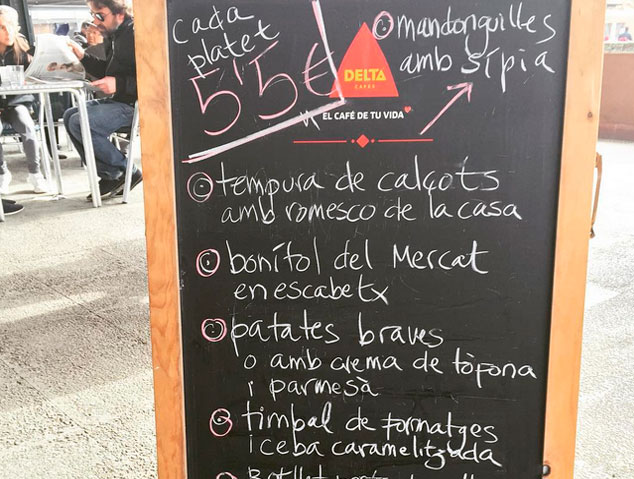 cada
platet
5'5€
mandonguilles
amb sípia
DELTA
CAFÉS
EL CAFÉ DE TU VIDA
tempura de calçots
amb romesco de la casa
bonítol del Mercat
en escabetx
patates braves
o amb crema de tòfona
i parmesà
timbal de formatges
i ceba caramelitzada